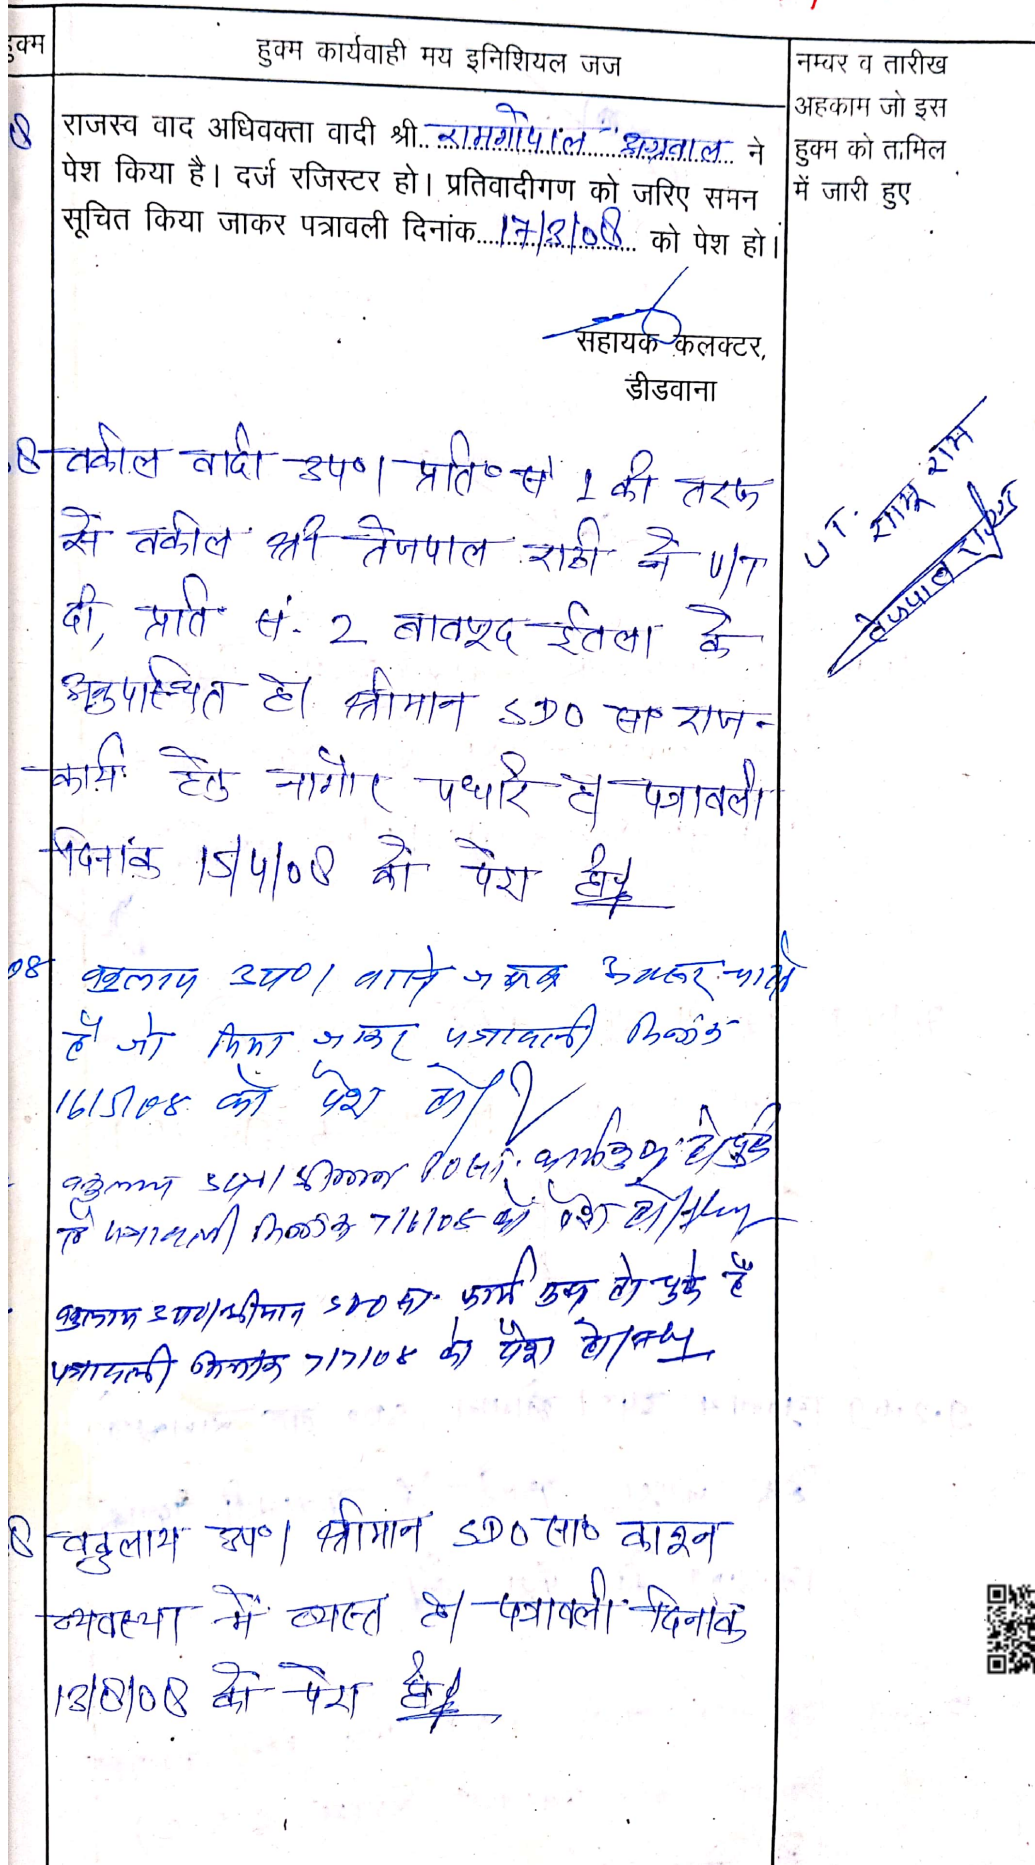 हुक्म
हुक्म कार्यवाही मय इनिशियल जज
नम्बर व तारीख
अहकाम जो इस
हुक्म को तामिल
में जारी हुए
राजस्व वाद अधिवक्ता वादी श्री रामगोपाल अग्रवाल ने
पेश किया है। दर्ज रजिस्टर हो। प्रतिवादीगण को जरिए समन
सूचित किया जाकर पत्रावली दिनांक 17/3/08 को पेश हो।
सहायक कलक्टर,
डीडवाना
वकील वादी उप०। प्रति० सं 1 की तरफ
से वकील श्री तेजपाल राठी ने U/T
दी, प्रति सं. 2 बावजूद ईतला के
अनुपस्थित है। श्रीमान SDO सा० राज-
कार्य हेतु नागौर पधारे है। पत्रावली
दिनांक 15/4/08 को पेश हो।
UT.
तेजपाल
08 वकुलाय उप०।
है जो किया जाकर पत्रावली दिनांक
16/5/08 को पेश हो।
वकुलाय उप०। श्रीमान
है पत्रावली दिनांक 7/6/08 को पेश हो।
वकुलाय उप०। श्रीमान SDO सा. कार्य मुक्त हो चुके है
पत्रावली दिनांक 7/7/08 को पेश हो।
वकुलाय उप०। श्रीमान SDO सा० कानून
व्यवस्था में व्यस्त है। पत्रावली दिनांक
13/8/08 को पेश हो।